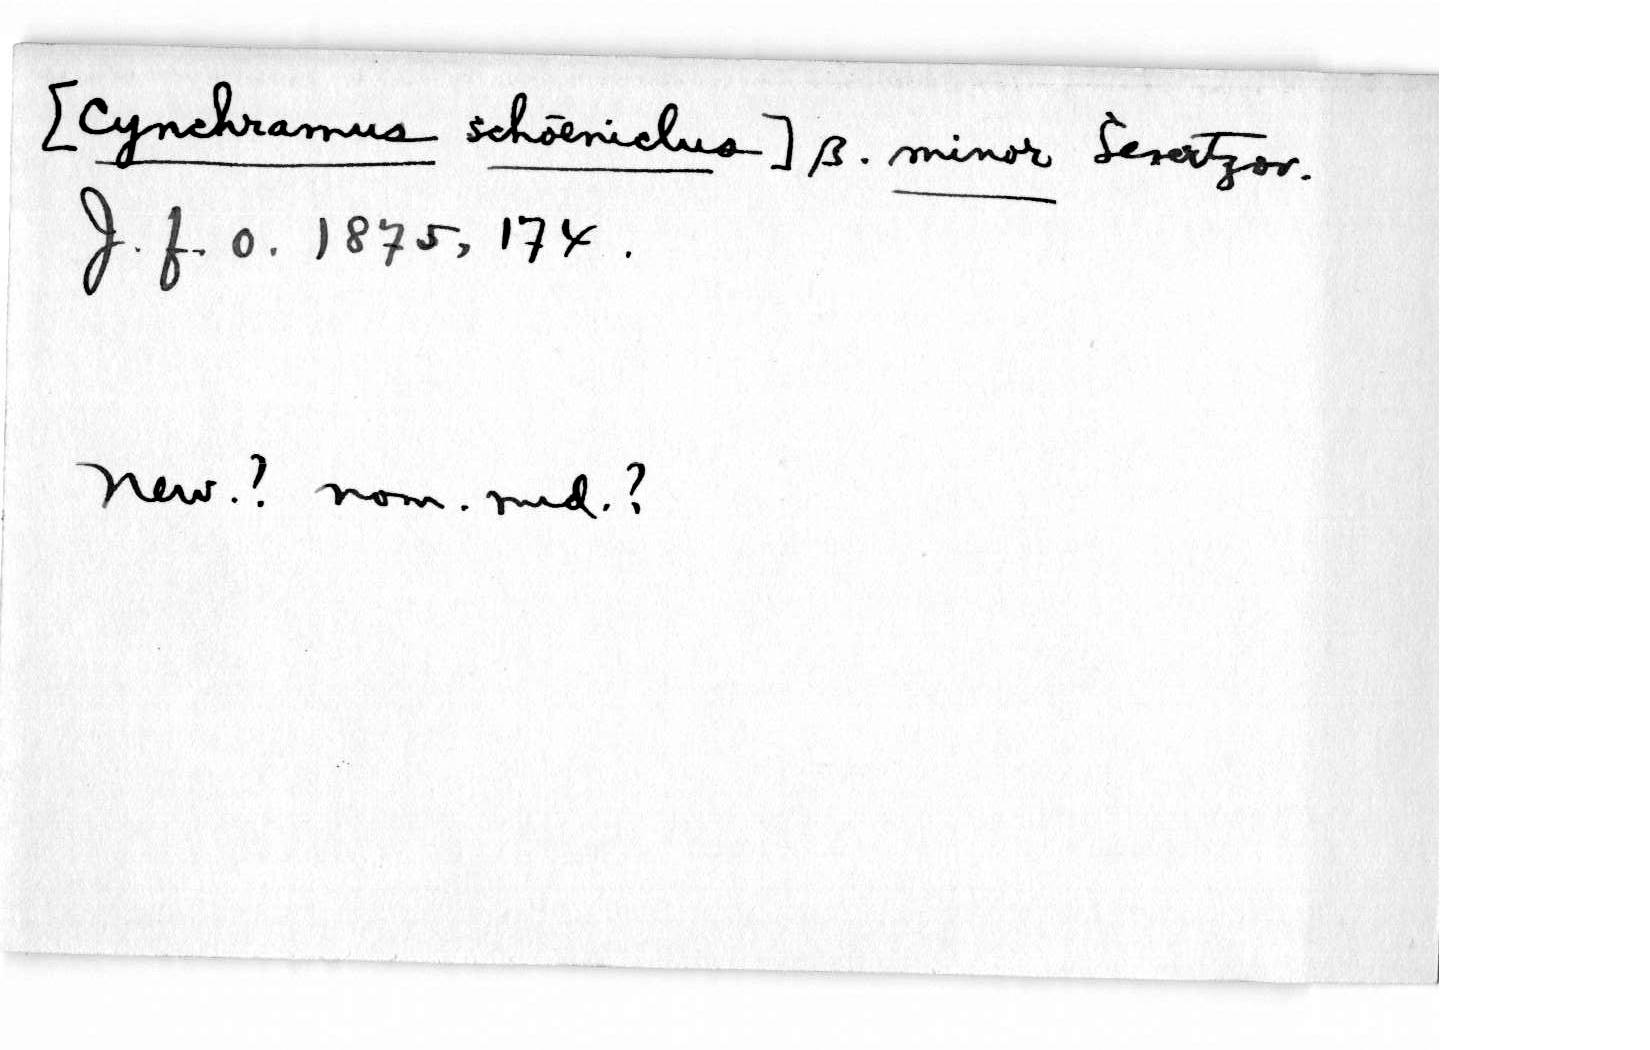 [Cynchramus schöeniclus] β. minor Severtzov.
J. f. O. 1875, 174.
New.? nom. nud.?